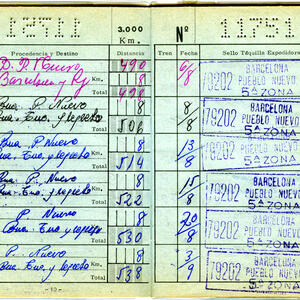 3.000 Km.
Nº
Procedencia y Destino Distancia Tren Fechas Sello Taquilla Expedidora
P. Nuevo 490 6/8 BARCELONA
Barcelona y Km. 8 79202 PUEBLO NUEVO
Total 498 5ª ZONA
Bna. P. Nuevo 8 8 BARCELONA
Bna. y regreso Km. 79202 PUEBLO NUEVO
Total 506 5ª ZONA
Bna. P. Nuevo 8 13/8 BARCELONA
Bna. y regreso Km. 79202 PUEBLO NUEVO
Total 514 5ª ZONA
Bna. P. Nuevo 8 15/8 BARCELONA
Bna. y regreso Km. 79202 PUEBLO NUEVO
Total 522 5ª ZONA
P. Nuevo 8 20/8 BARCELONA
Bna. y regreso Km. 79202 PUEBLO NUEVO
Total 530 5ª ZONA
P. Nuevo 8 3/9 BARCELONA
Bna. y regreso Km. 79202 PUEBLO NUEVO
Total 538 5ª ZONA